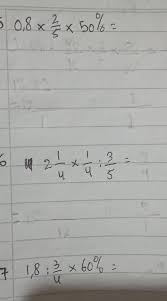 5 0,8 × 2/5 × 50% =
6 2 1/4 × 1/4 : 3/5 =
7 1,8 : 3/4 × 60% =